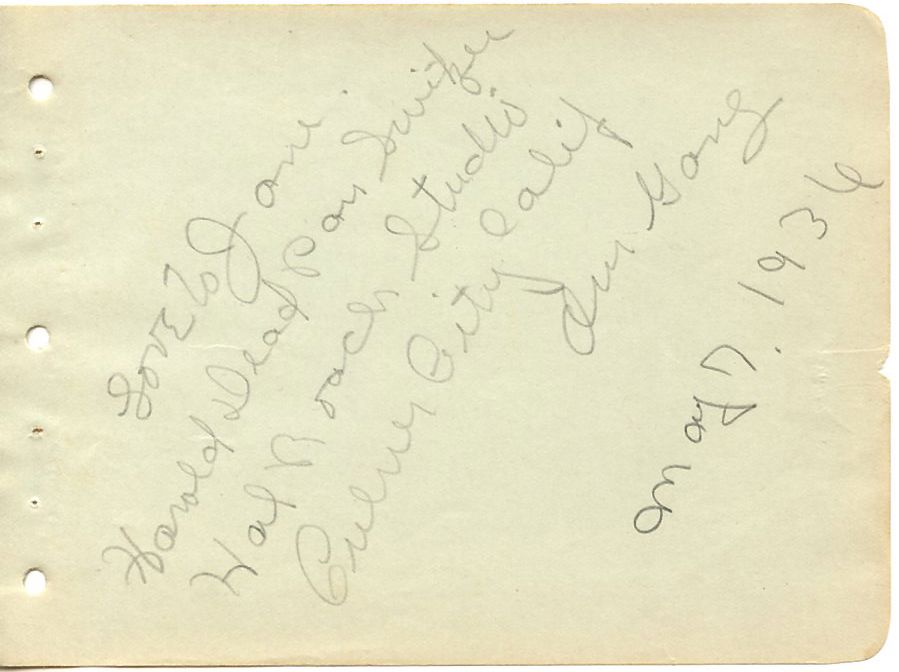 Love to Jane.
Harold Dead Pan Switzer
Hal Roach Studio.
Culver City Calif
Our Gang
May 7. 1936